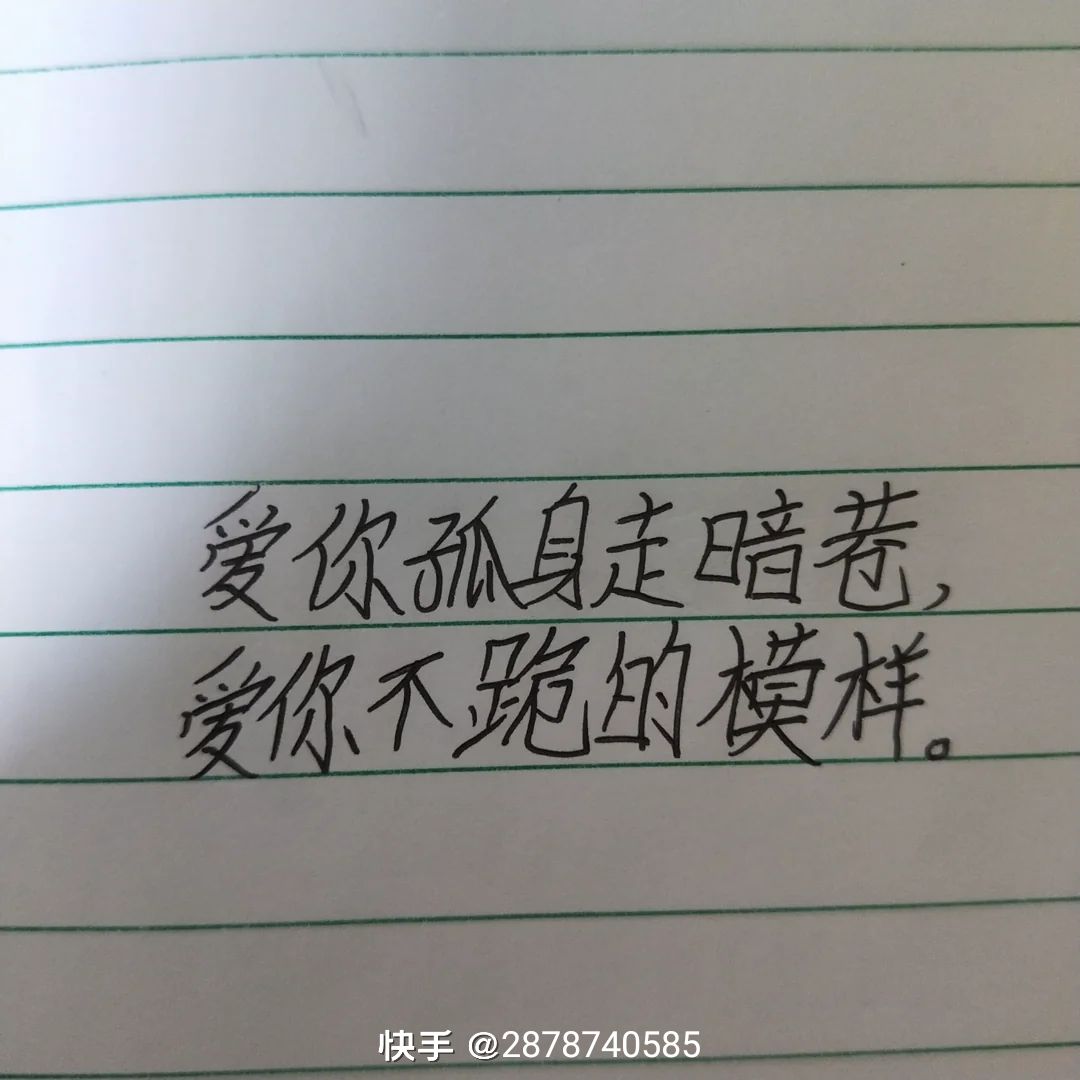 爱你孤身走暗巷,
爱你不跪的模样。
快手 @2878740585